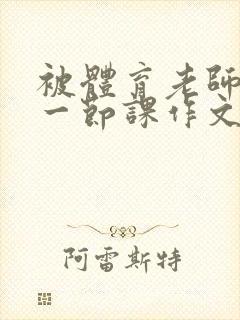 被體育老師
一節課作文
阿雷斯特